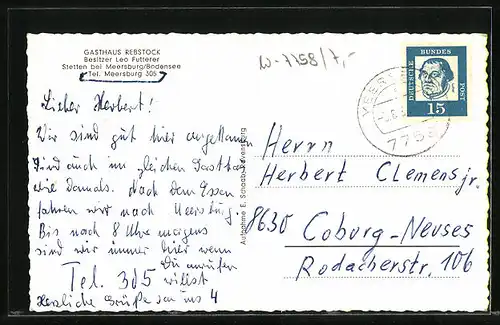 GASTHAUS REBSTOCK
Besitzer Leo Futterer
Stetten bei Meersburg/Bodensee
Tel. Meersburg 305
W-7758/7,-
DEUTSCHE BUNDES POST
15
MEERSBURG
7758
Lieber Herbert!
Wir sind gut hier angekommen
Sind auch im gleichen Gasthaus
wie damals. Nach dem Essen
fahren wir nach Meersburg.
Bis nach 8 Uhr morgens
sind wir immer hier wenn
Du anrufen
Tel. 305 willst
Herzliche Grüße von uns 4
Aufnahme E. Schabe-Ravensburg
Herrn
Herbert Clemens jr.
8630 Coburg-Neuses
Rodacherstr. 106